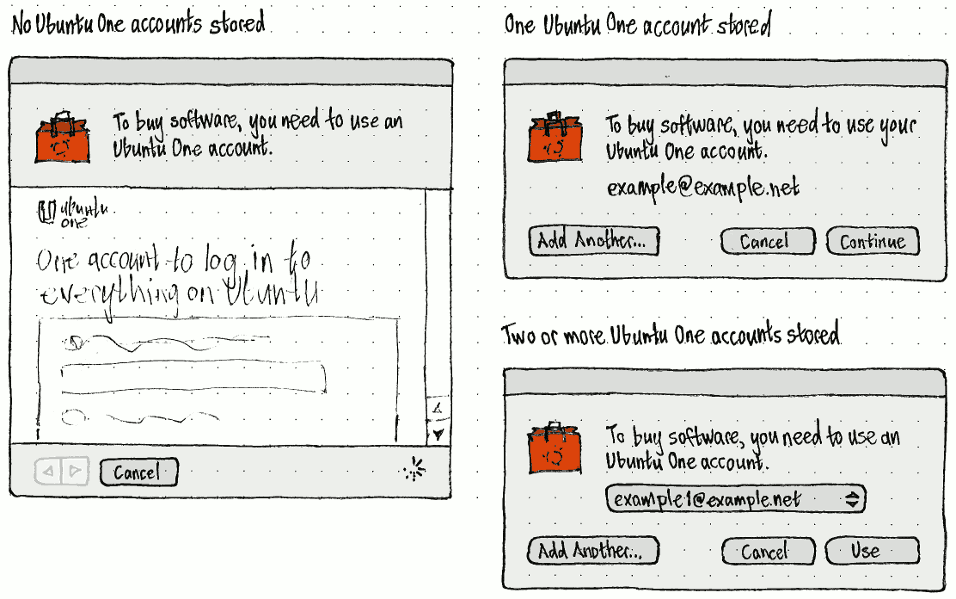 No Ubuntu One accounts stored
To buy software, you need to use an
Ubuntu One account.
ubuntu
one
One account to log in to
everything on Ubuntu
Cancel
One Ubuntu One account stored
To buy software, you need to use your
Ubuntu One account.
example@example.net
Add Another...
Cancel
Continue
Two or more Ubuntu One accounts stored
To buy software, you need to use an
Ubuntu One account.
example1@example.net
Add Another...
Cancel
Use